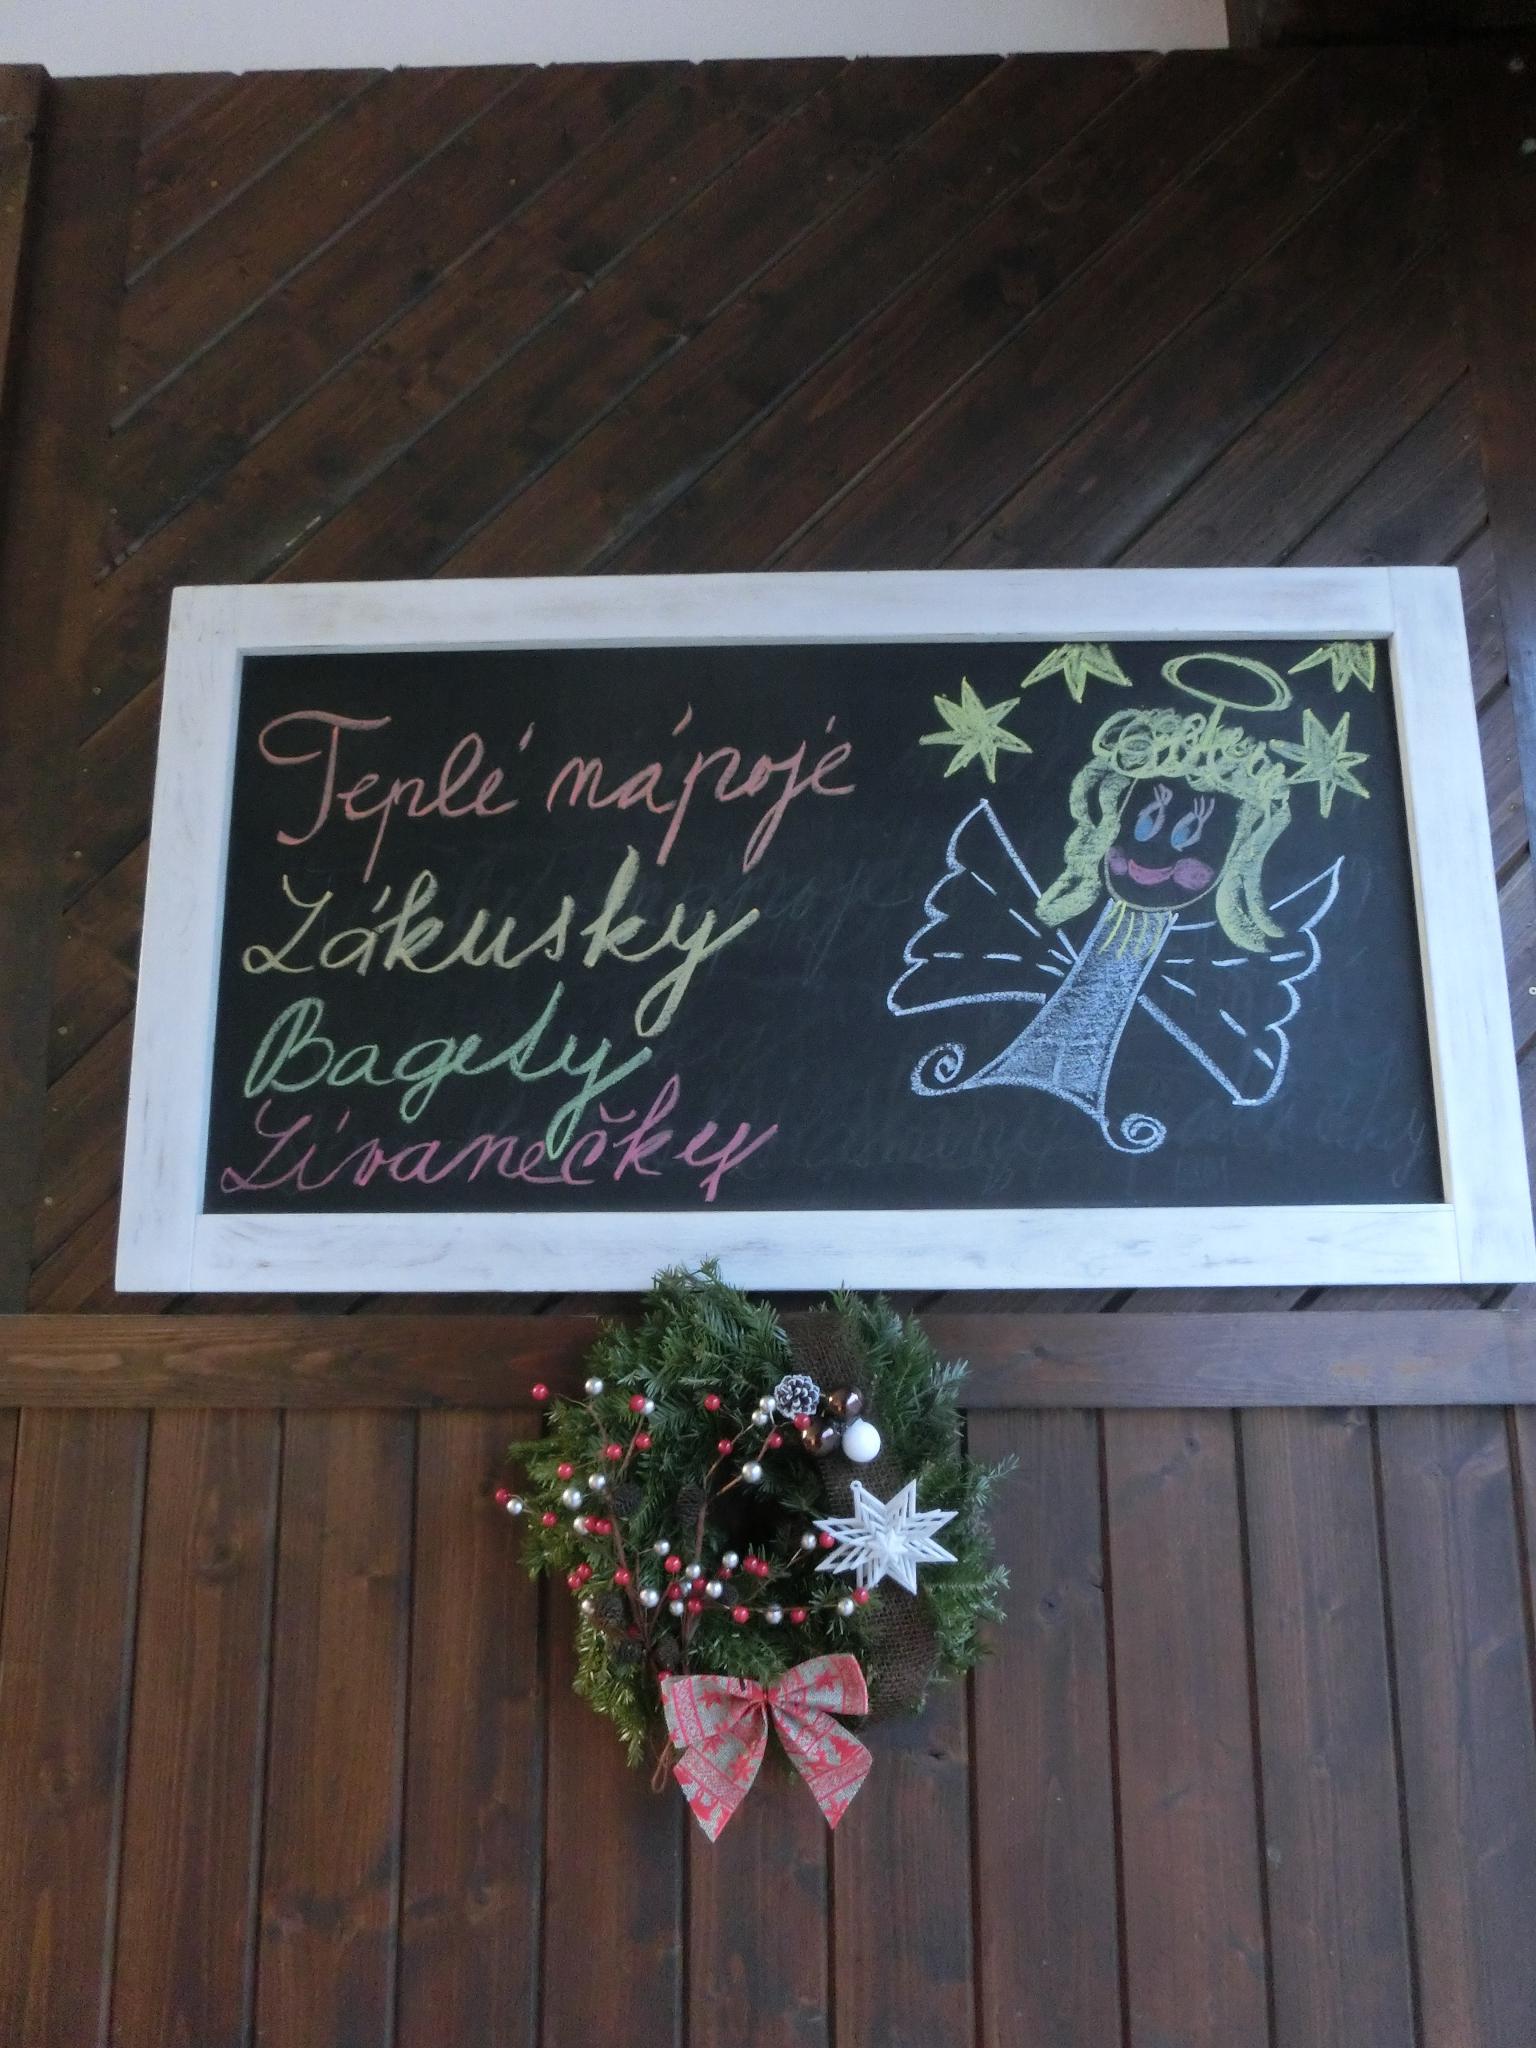 Teplé nápoje
Zákusky
Bagety
Lívanečky